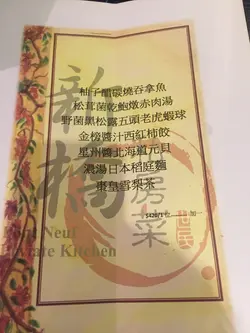 柚子醋碳燒吞拿魚
松茸菌乾鮑燉赤肉湯
野菌黑松露五頭老虎蝦球
金榜醬汁西紅柿餃
星州醬北海道元貝
濃湯日本稻庭麵
棗皇雪梨茶
新橋
房菜
Neuf
Kitchen